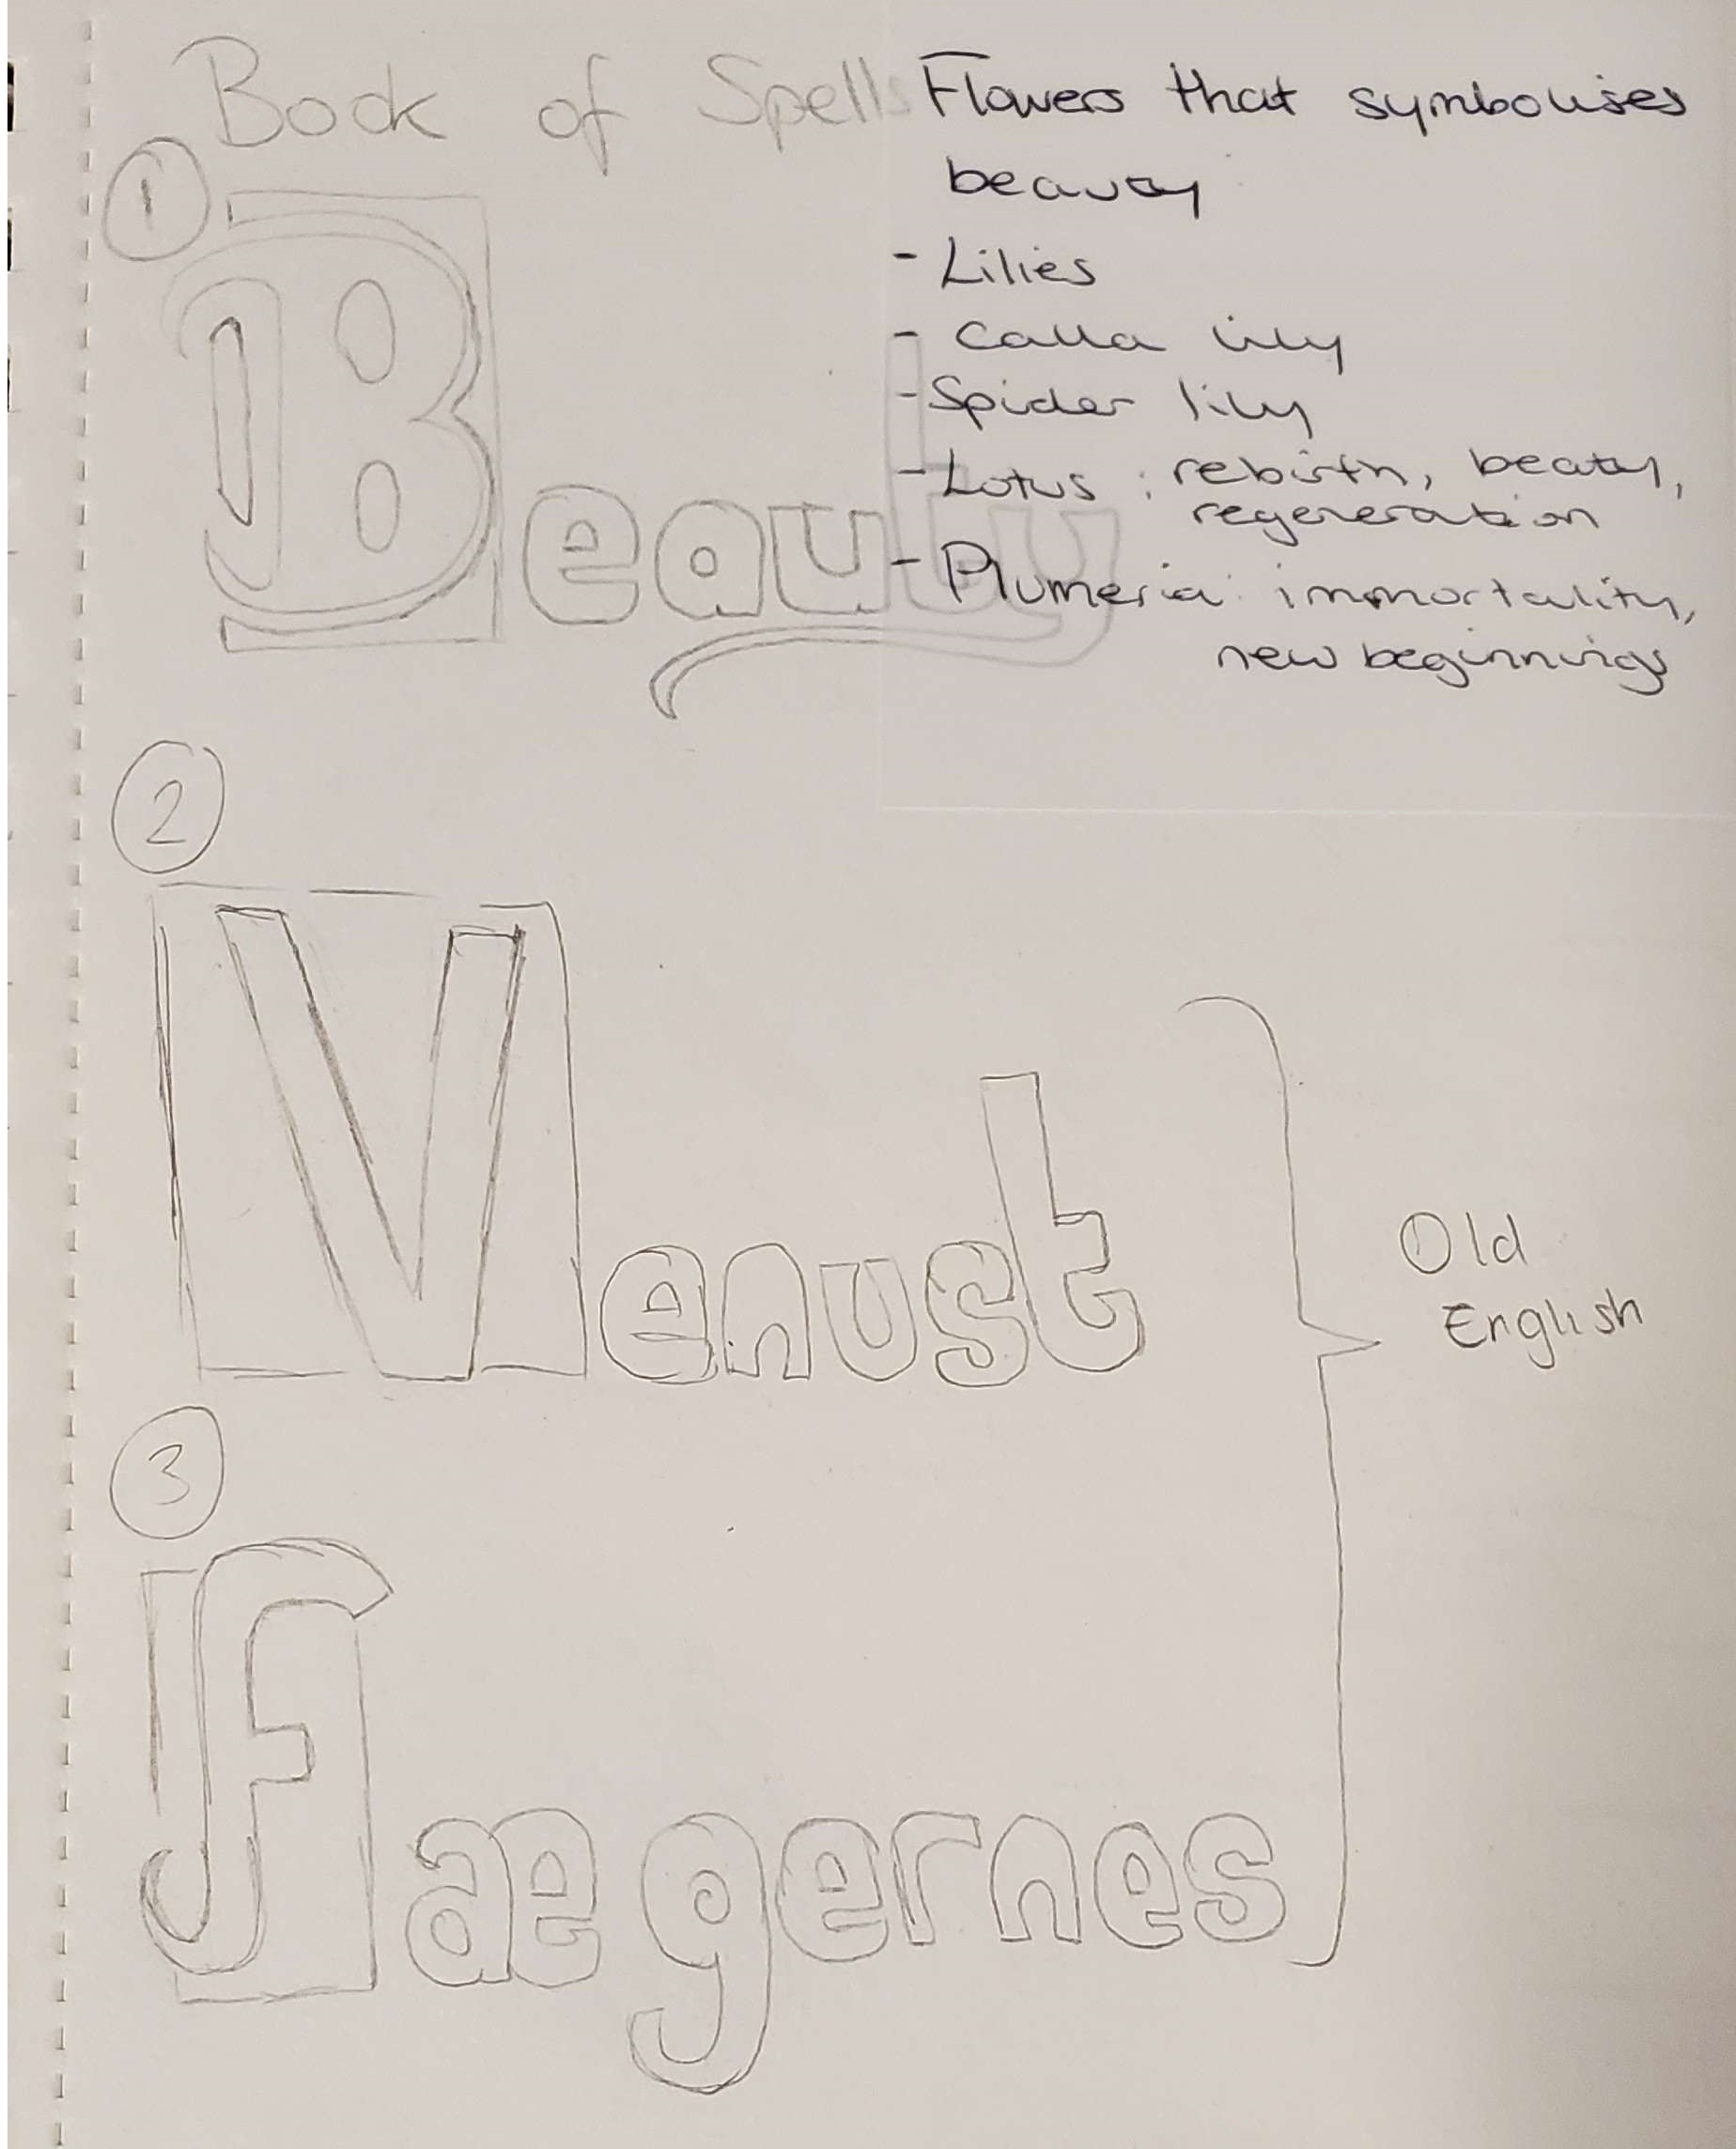 Book of Spells
Flowers that symbolises
beauty
- Lilies
- Calla lily
- Spider lily
- Lotus : rebirth, beaty,
regeneration
- Plumeria: immortality,
new beginnings
1
Beauty
2
Venust
3
Fægernes
Old
English